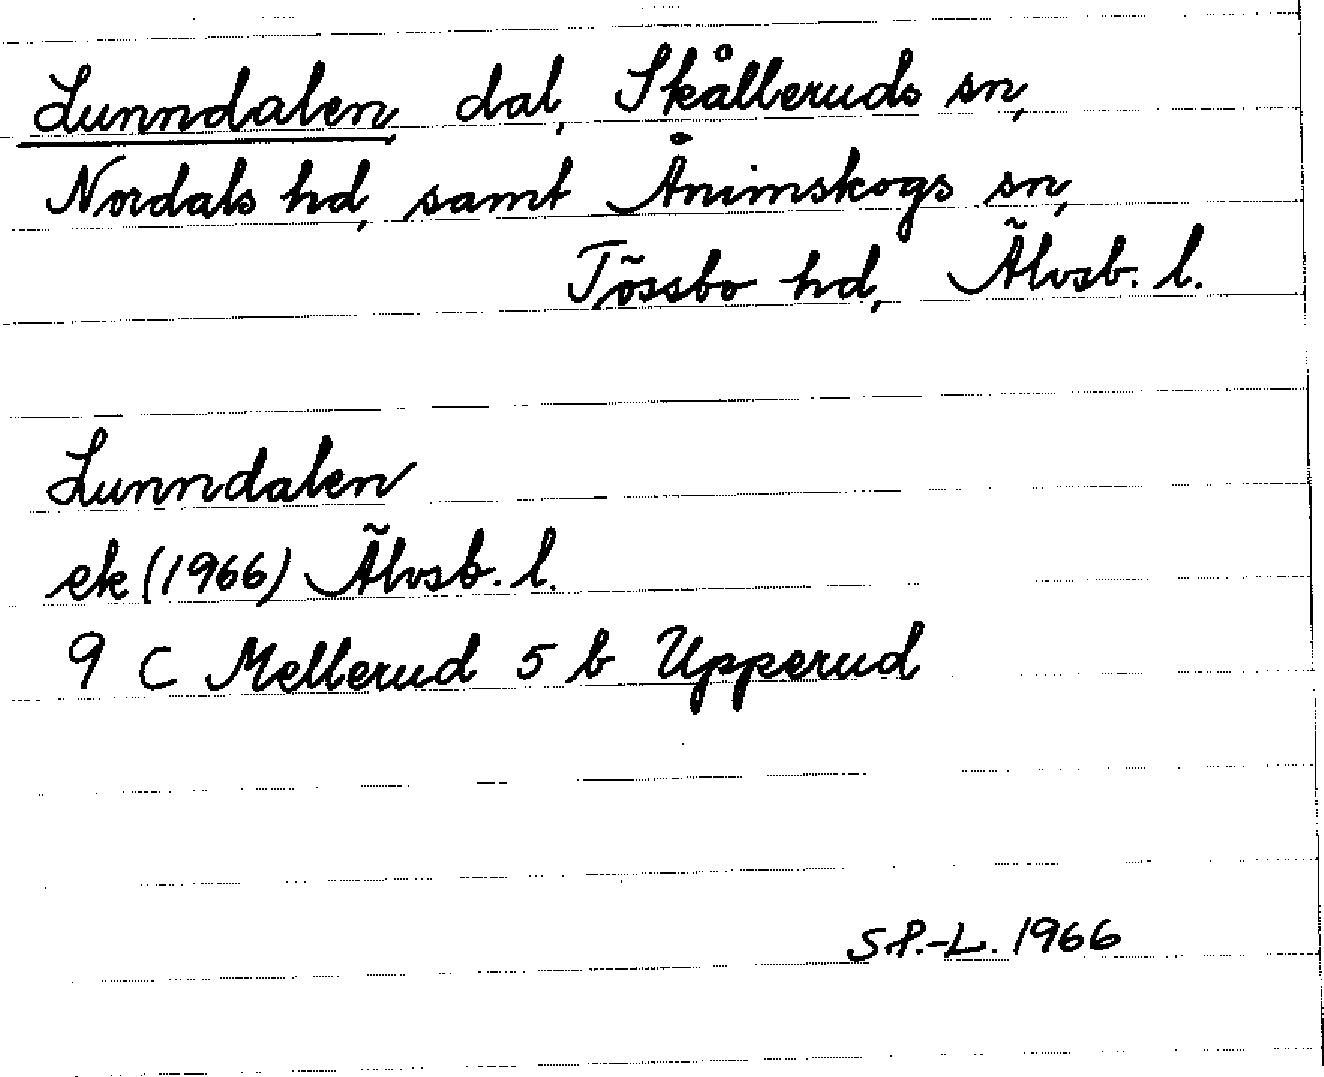 Lunndalen, dal, Skålleruds sn,
Nordals hd, samt Ånimskogs sn,
Tössbo hd, Älvsb. l.
Lunndalen
ek (1966) Älvsb. l.
9 C Mellerud 5 b Upperud
S P.-L. 1966